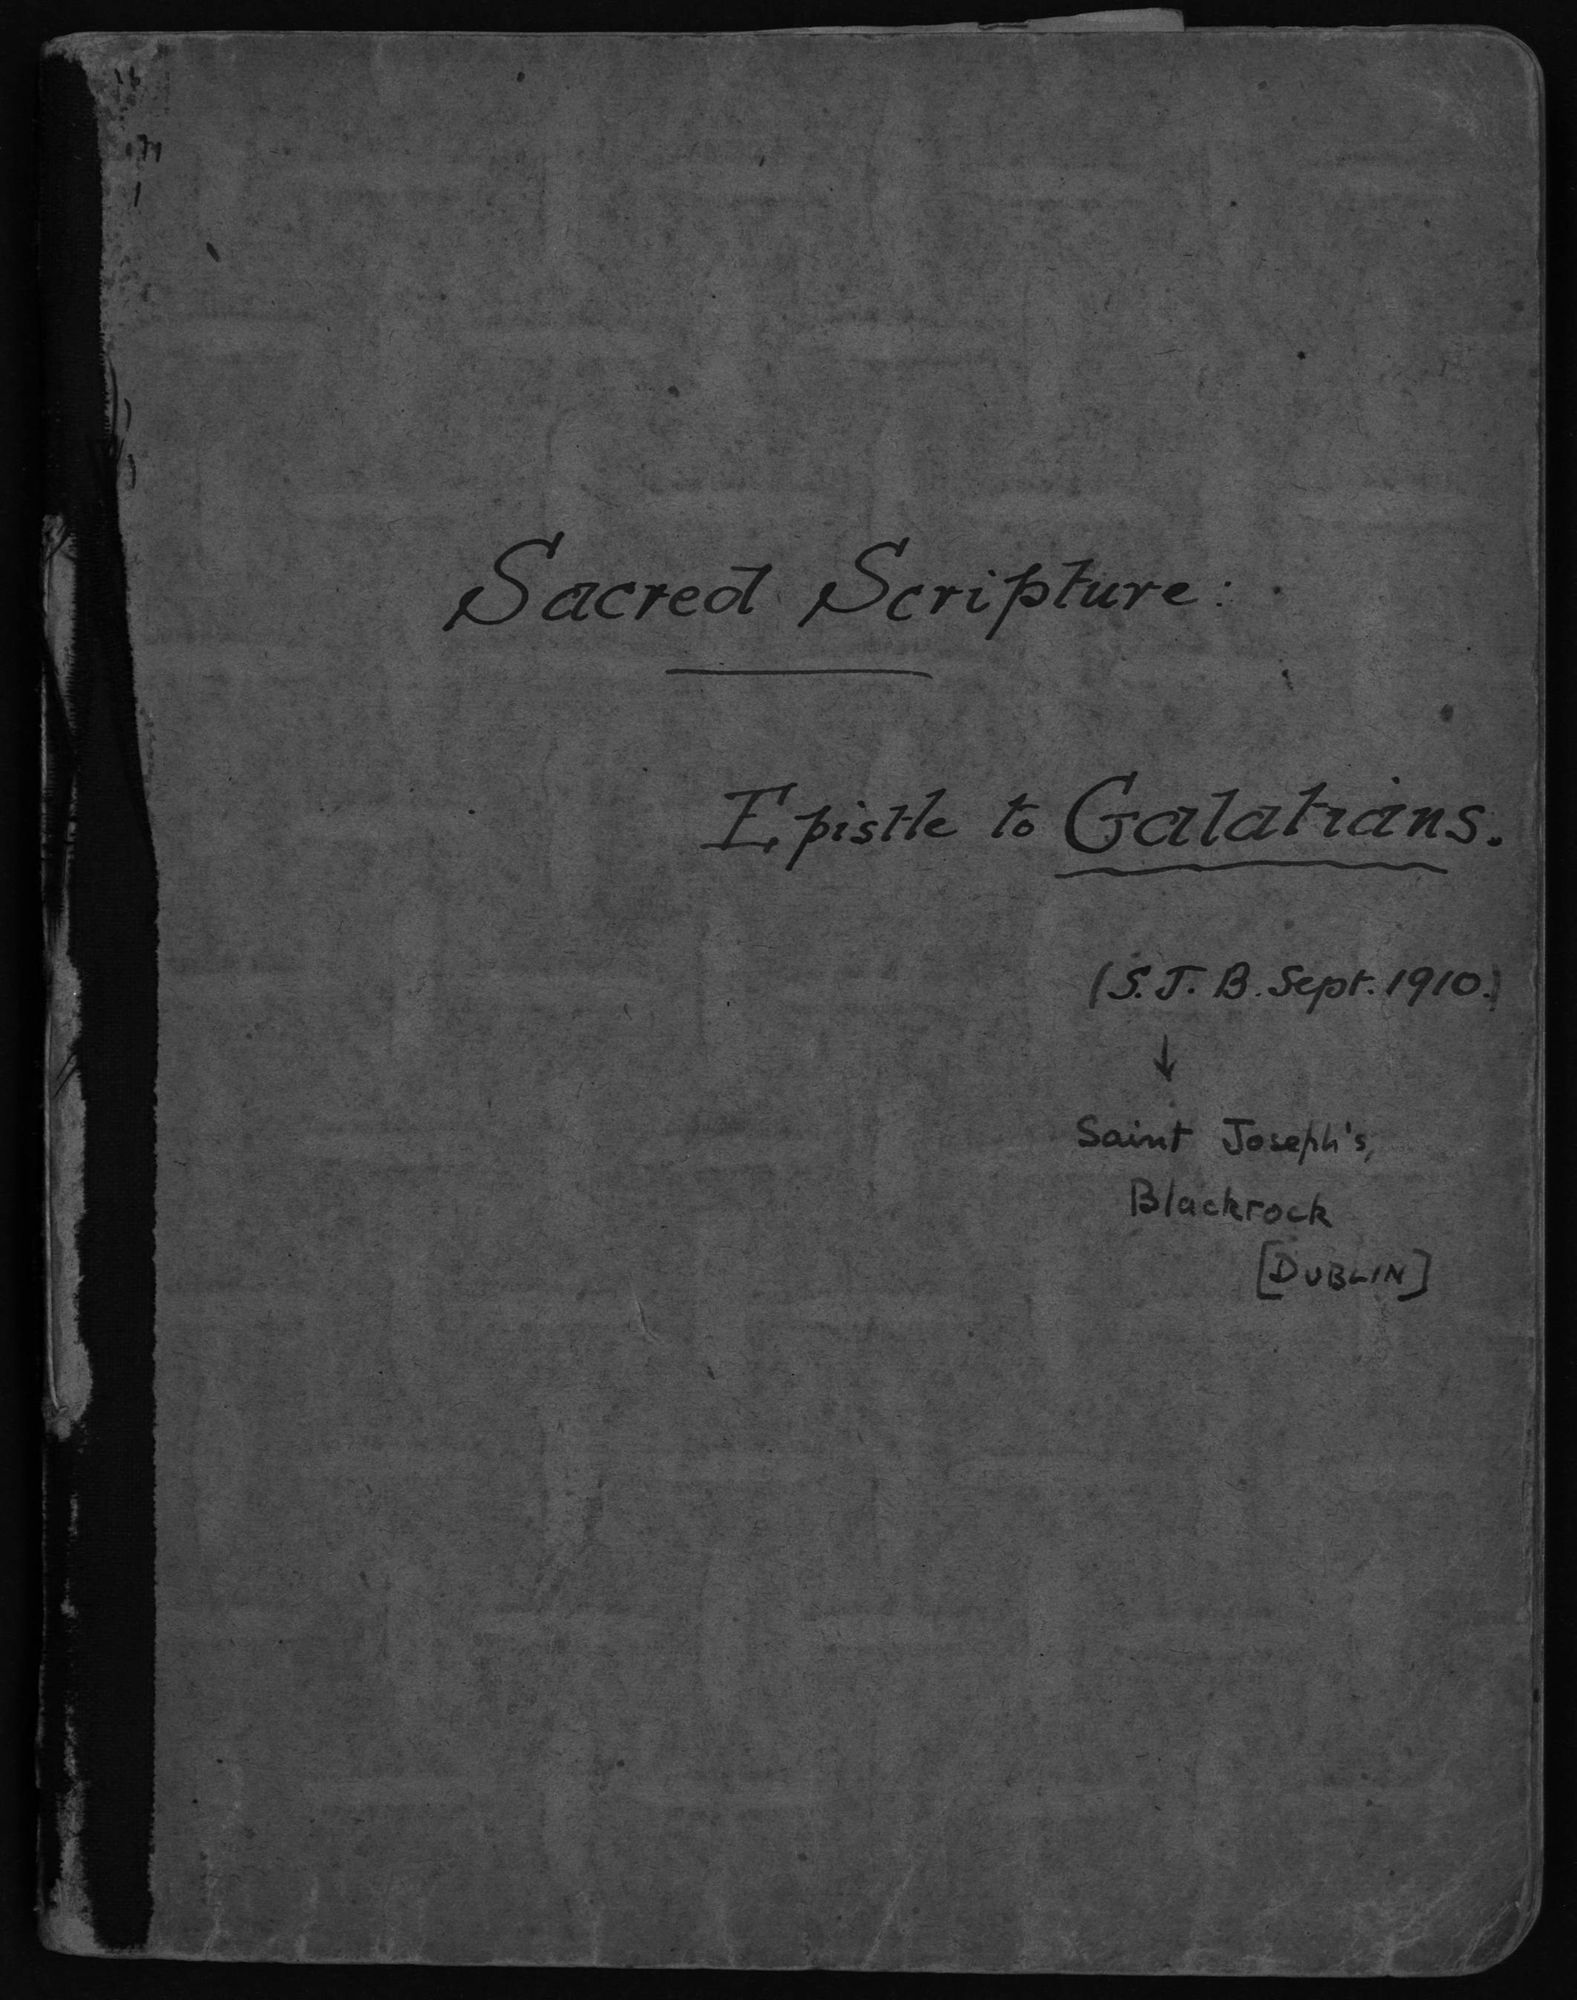 Sacred Scripture:
Epistle to Galatians.
(S. J. B. Sept. 1910.)
↓
Saint Joseph's,
Blackrock
[DUBLIN]